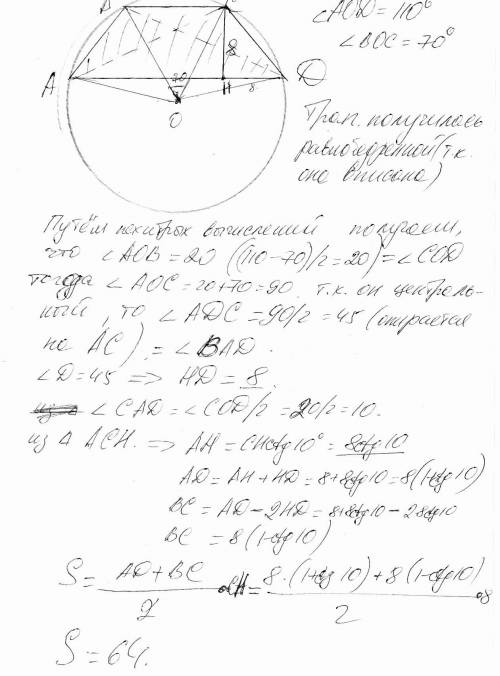 ∠AOD = 110°
∠BOC = 70°
A
H
8
D
70
O
8
Трап. получилась
равнобедренной (т.к.
она вписана)
Путём нехитрых вычислений получаем,
что ∠AOB = 20 ((110-70)/2 = 20) = ∠COD
тогда ∠AOC = 20+70 = 90. т.к. он централь-
ный, то ∠ADC = 90/2 = 45 (опирается
на AC) = ∠BAD.
∠D = 45 => HD = 8.
∠CAD = ∠COD/2 = 20/2 = 10.
из Δ ACH. => AH = CH ctg 10° = 8ctg 10
AD = AH + HD = 8 + 8ctg 10 = 8(1+ctg 10)
BC = AD - 2HD = 8+8ctg 10 - 28ctg 10
BC = 8(1-ctg 10)
S = AD+BC / 2 · CH = 8·(1+ctg 10)+8(1-ctg 10) / 2 · 8
S = 64.